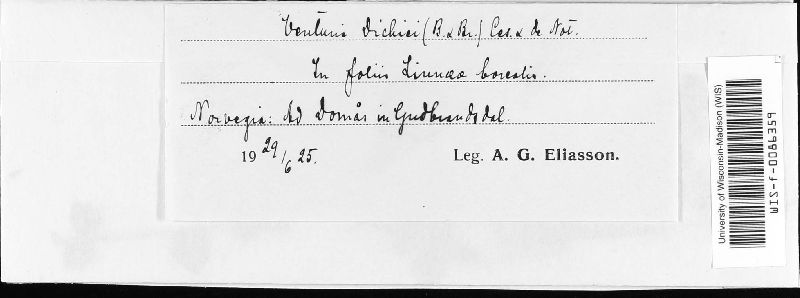 Venturia Dickiei (B. & Br.) Ces. & de Not.
In foliis Linnææ borealis.
Norvegia: Ad Domås in Gudbrandsdal.
19 29/6 25.
Leg. A. G. Eliasson.
University of Wisconsin-Madison (WIS)
WIS-f-0086359